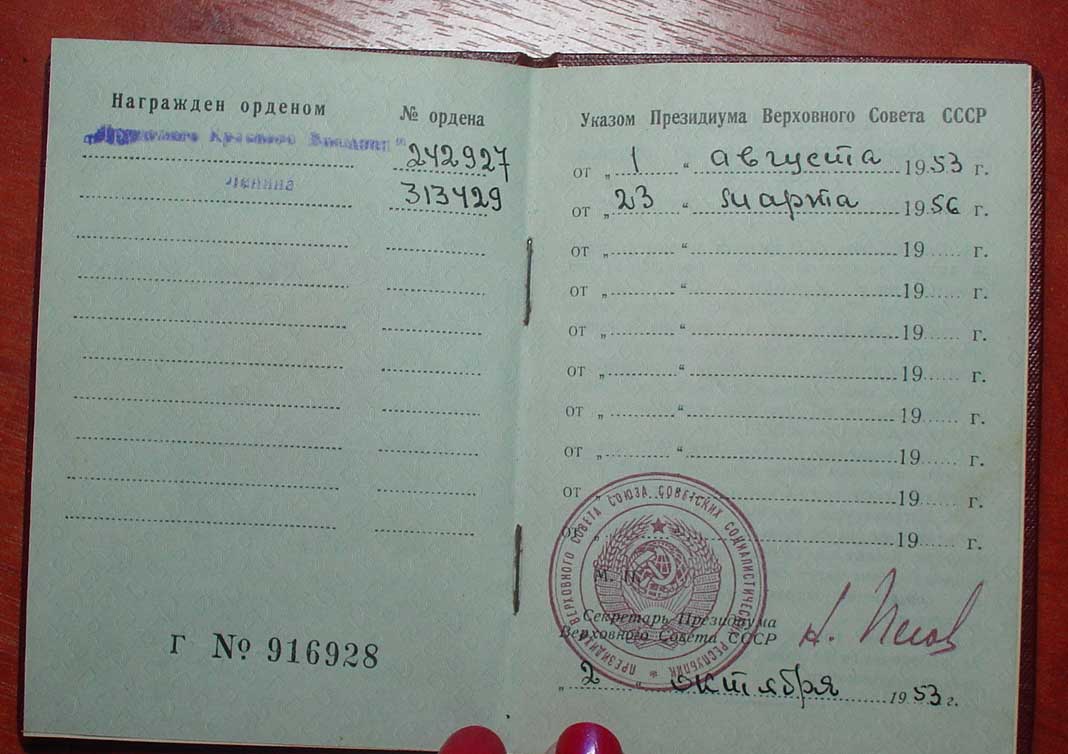 Награжден орденом
№ ордена
Трудового Красного Знамени"
242927
Ленина
313429
Г № 916928
Указом Президиума Верховного Совета СССР
от „ 1 “ августа 1953 г.
от „ 23 “ марта 1956 г.
от „ “ 19 г.
от „ “ 19 г.
от „ “ 19 г.
от „ “ 19 г.
от „ “ 19 г.
от „ “ 19 г.
от „ 19 г.
от „ 19 г.
ПРЕЗИДИУМ ВЕРХОВНОГО СОВЕТА СОЮЗА СОВЕТСКИХ СОЦИАЛИСТИЧЕСКИХ РЕСПУБЛИК
М. П.
Секретарь Президиума
Верховного Совета СССР
Н. Пегов
„ 2 “ октября 1953 г.